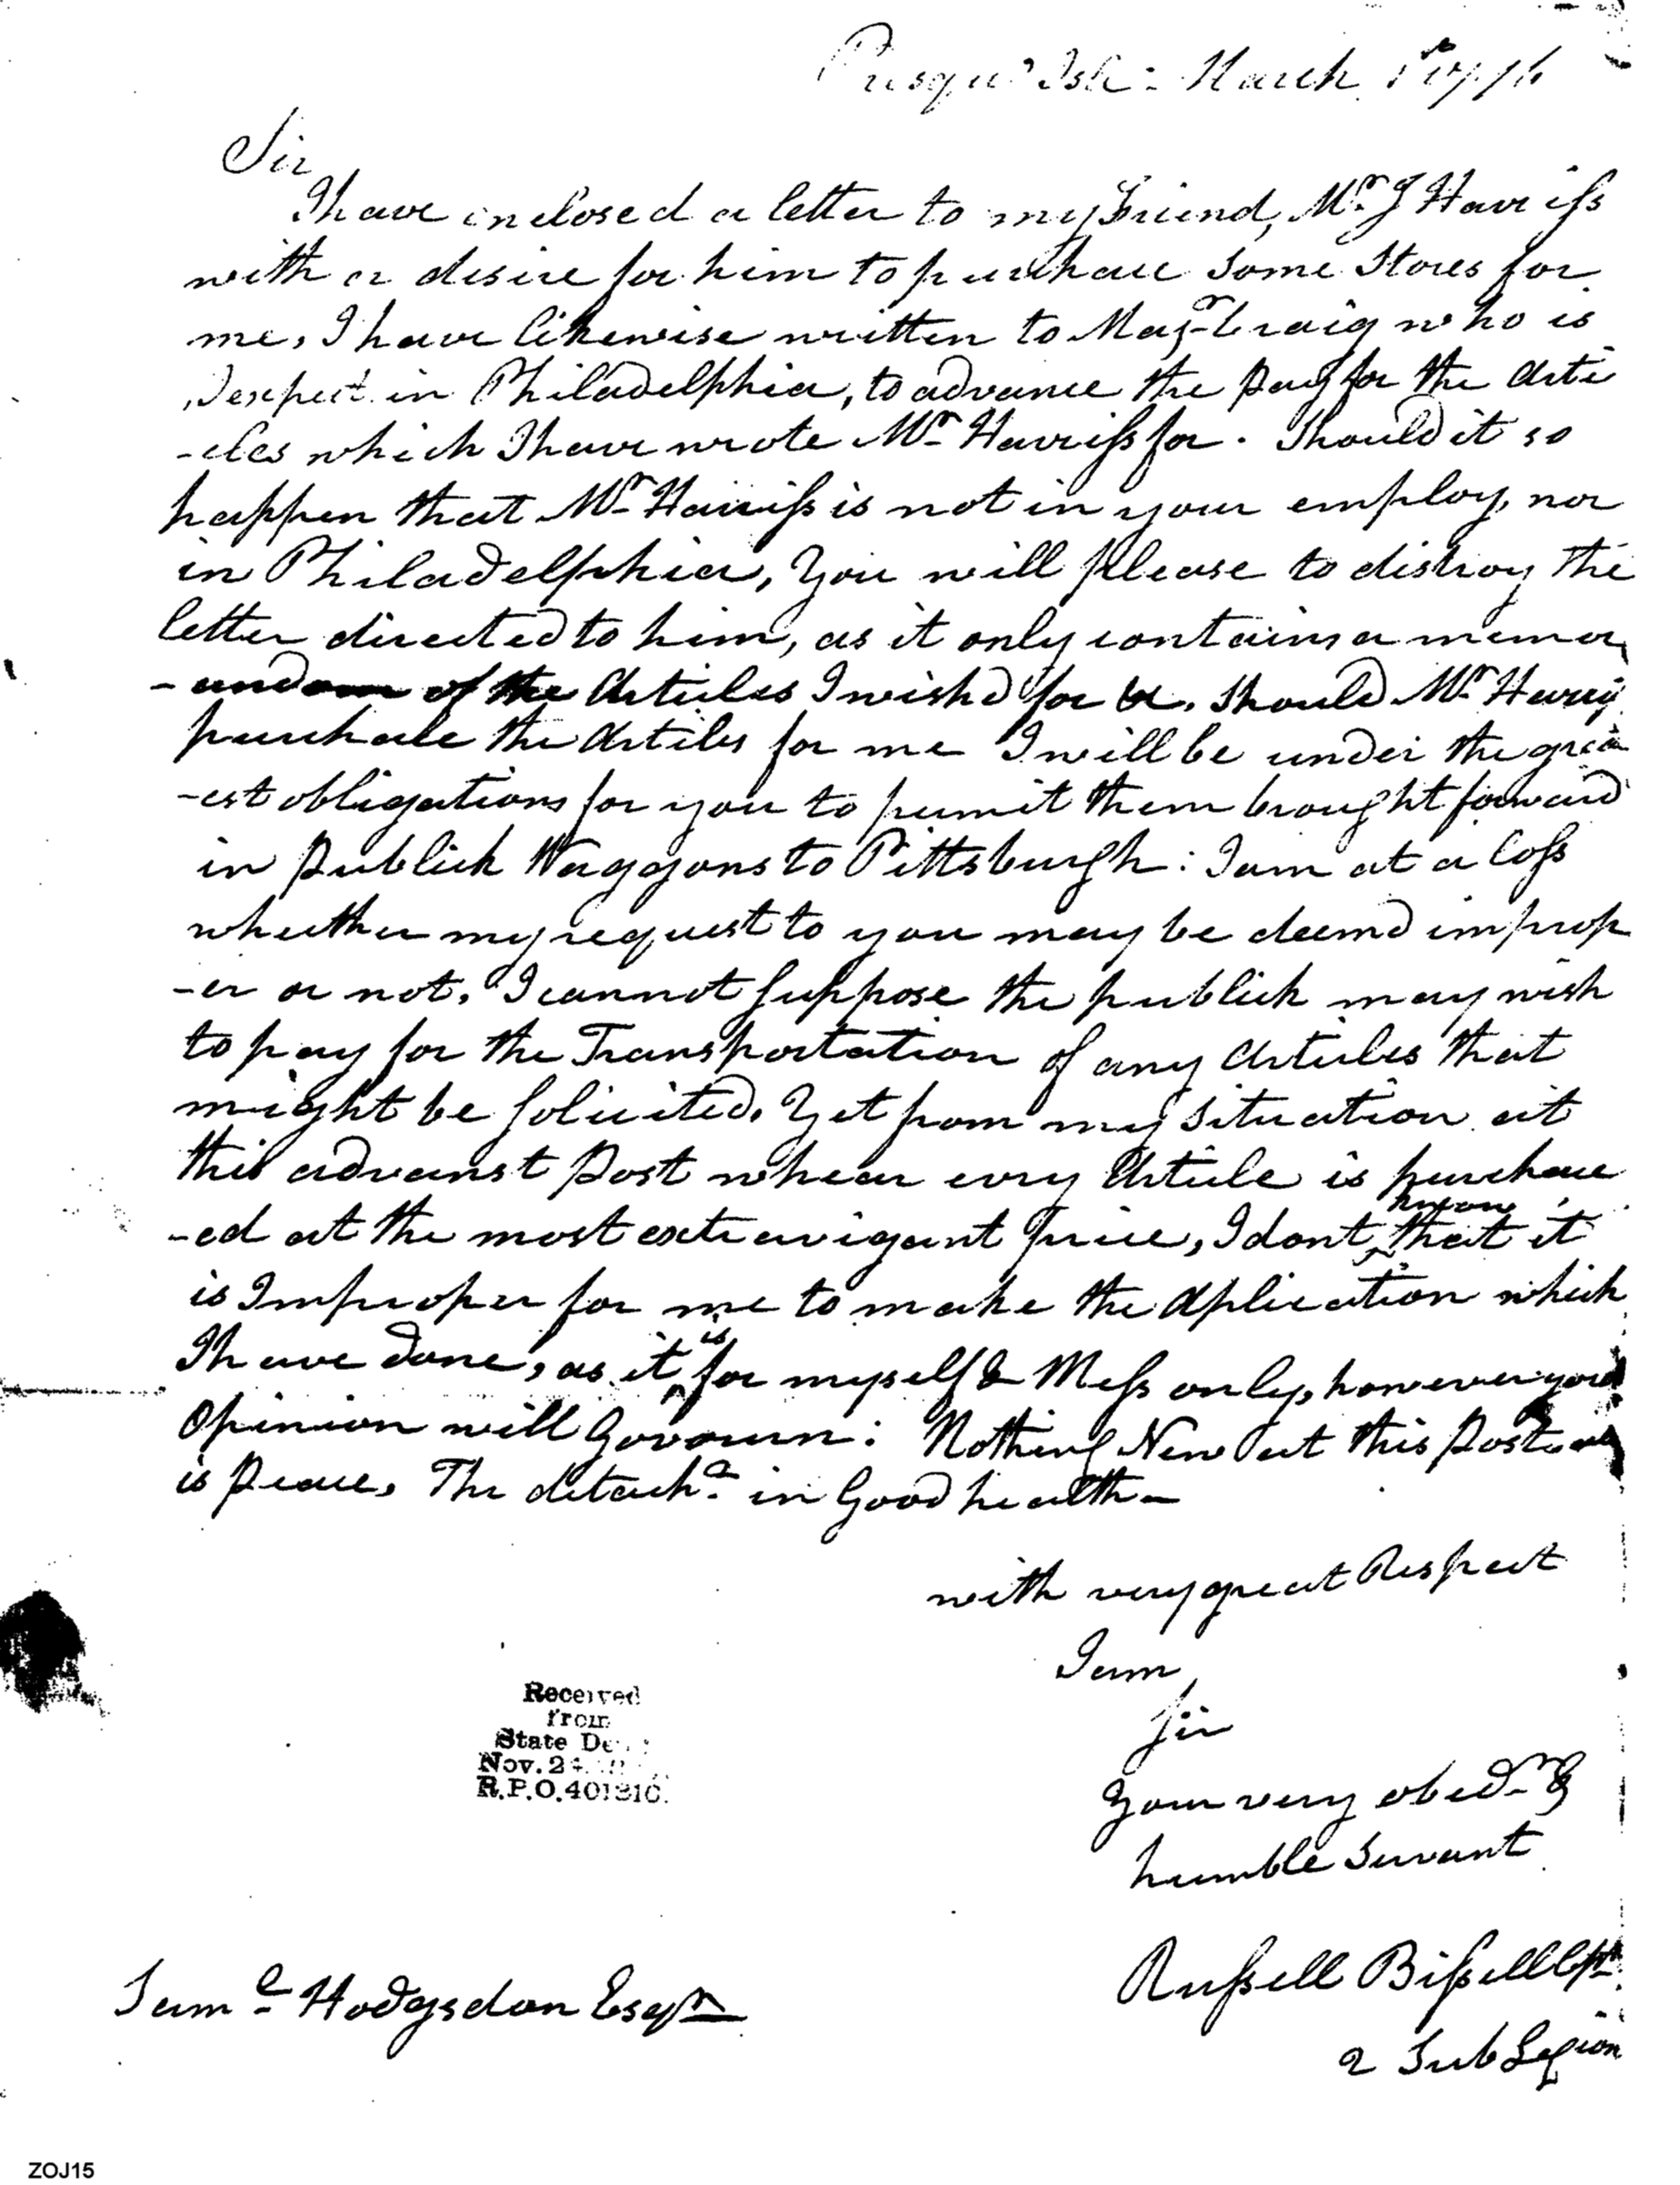 Presqu' Isle: March 1st 1796
Sir
I have inclosed a letter to my Friend, Mr. J Harriss
with a desire for him to purchase Some Stores for
me, I have likewise written to Majr Craig who is
I expect in Philadelphia, to advance the pay for the Arti
-cles which I have wrote Mr Harriss for. Should it so
happen that Mr Harriss is not in your employ, nor
in Philadelphia, You will please to distroy the
letter directed to him, as it only contains a memor
-andom of the Articles I wishd for &c. Should Mr Harris
purchase the Articles for me I will be under the great
-est obligations for you to permit them brought forward
in Publick Waggons to Pittsburgh: I am at a Loss
whether my request to you may be deemd improp
-er or not, I cannot Suppose the publick may wish
to pay for the Transportation of any Articles that
might be Solicited, Yet from my Situation at
this advanst Post whear evry Article is purchase
-ed at the most extravigant price, I dont that it
know
is Improper for me to make the Aplication which
I have done, as it is for myself & Mess only, however your
Opinion will Govourn: Nothing New at this Post
is Peace, The detacht. in Good health—
with very great Respect
I am
Sir
Your very obedt &
humble Servant
Russell Bissell Cpt.
2 Sub Legion
Saml Hodgsdon Esqr
Received
from
State De
Nov. 24
R.P.O. 401310.
ZOJ15